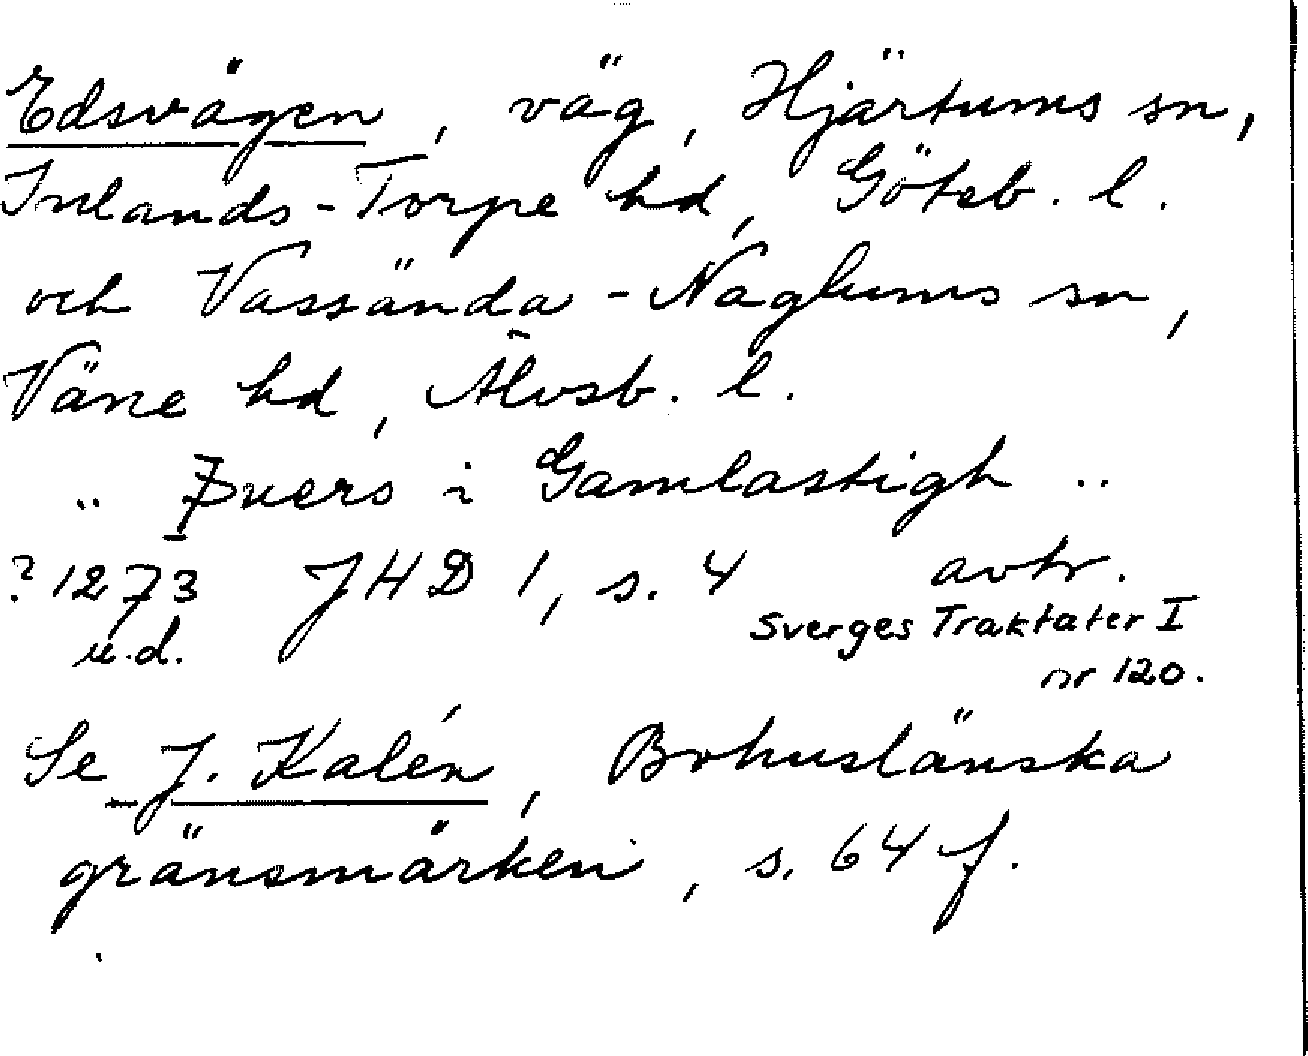 Edsvägen, väg, Hjärtums sn,
Inlands-Torpe hd, Göteb. l.
och Vassända-Naglums sn,
Väne hd, Älvsb. l.
.. Þuers i Gamlastigh ..
? 1273 JHD 1, s. 4 avtr.
u.d. Sverges Traktater I
nr 120.
Se J. Kalén, Bohuslänska
gränsmärken, s. 64 f.